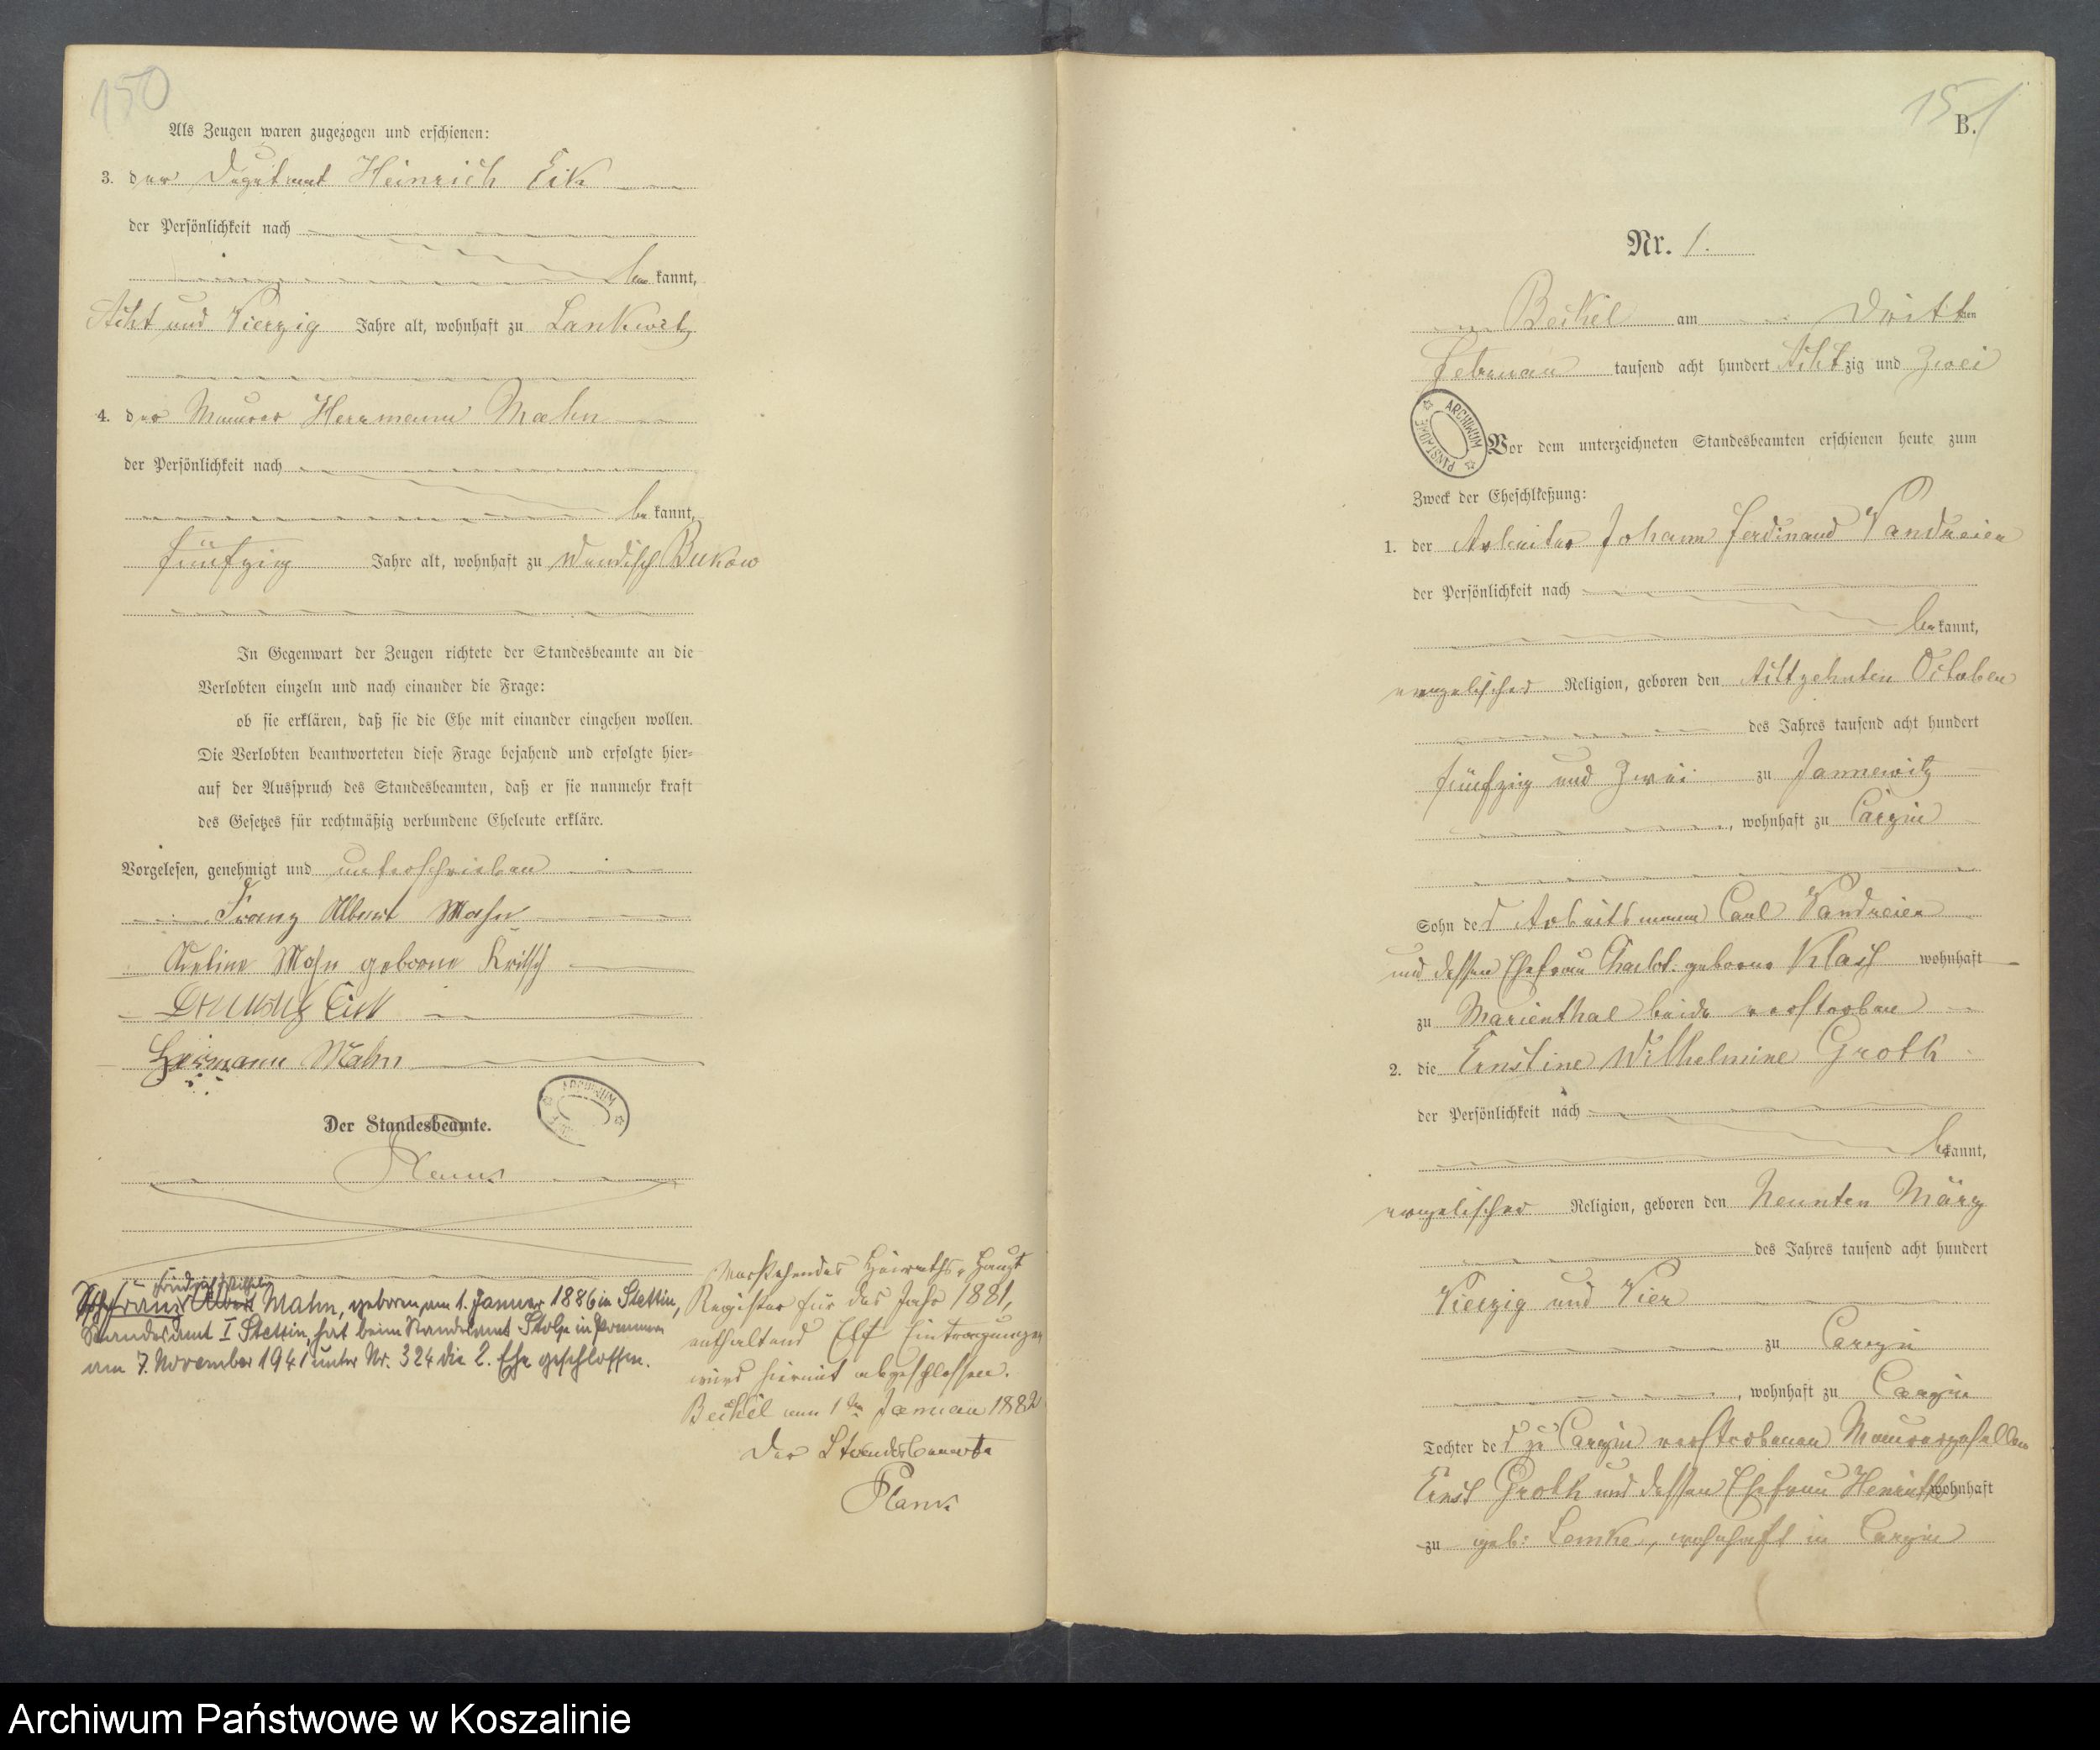 150
Als Zeugen waren zugezogen und erschienen:
3. der Deputant Heinrich Eik
der Persönlichkeit nach
be kannt,
Acht und Vierzig Jahre alt, wohnhaft zu Lankwitz
4. der Maurer Herrmann Mahn
der Persönlichkeit nach
be kannt,
fünfzig Jahre alt, wohnhaft zu Wendisch Bukow
In Gegenwart der Zeugen richtete der Standesbeamte an die
Verlobten einzeln und nach einander die Frage:
ob sie erklären, daß sie die Ehe mit einander eingehen wollen.
Die Verlobten beantworteten diese Frage bejahend und erfolgte hier-
auf der Ausspruch des Standesbeamten, daß er sie nunmehr kraft
des Gesetzes für rechtmäßig verbundene Eheleute erkläre.
Vorgelesen, genehmigt und unterschrieben
Franz Albert Mahn
Mahn geborene Kritsch
Eick
Hermann Mahn
ARCHIWUM
Der Standesbeamte.
Friedrich Wilhelm
Franz Albert Mahn, geboren am 1. Januar 1886 in Stettin,
Standesamt I Stettin, hat beim Standesamt Stolp in Pommern
am 7. November 1941 unter Nr. 324 die 2. Ehe geschlossen.
Vorstehendes Heiraths-Haupt
Register für das Jahr 1881,
enthaltend Elf Eintragungen
wird hiermit abgeschlossen.
am 1ten Januar 1882
Der Standesbeamte
151
B.
Nr. 1.
am Dritten
Februar tausend acht hundert Achtzig und Zwei
ARCHIWUM PAŃSTWOWE
Vor dem unterzeichneten Standesbeamten erschienen heute zum
Zweck der Eheschließung:
1. der Arbeiter Johann Ferdinand Vandreier
der Persönlichkeit nach
be kannt,
evangelischer Religion, geboren den Achtzehnten October
des Jahres tausend acht hundert
fünfzig und Zwei zu Jannewitz
, wohnhaft zu Carzin
Sohn des Arbeitsmann Carl Vandreier
und dessen Ehefrau Charlot. geborene Klass wohnhaft
zu Marienthal beide verstorben
2. die Ernstine Wilhelmine Groth
der Persönlichkeit nach
bekannt,
evangelischer Religion, geboren den Neunten März
des Jahres tausend acht hundert
Vierzig und Vier
zu Carzin
, wohnhaft zu Carzin
Tochter des zu Carzin verstorbenen Maurergesellen
Ernst Groth und dessen Ehefrau wohnhaft
zu geb: Lemke, wohnhaft in Carzin
Archiwum Państwowe w Koszalinie